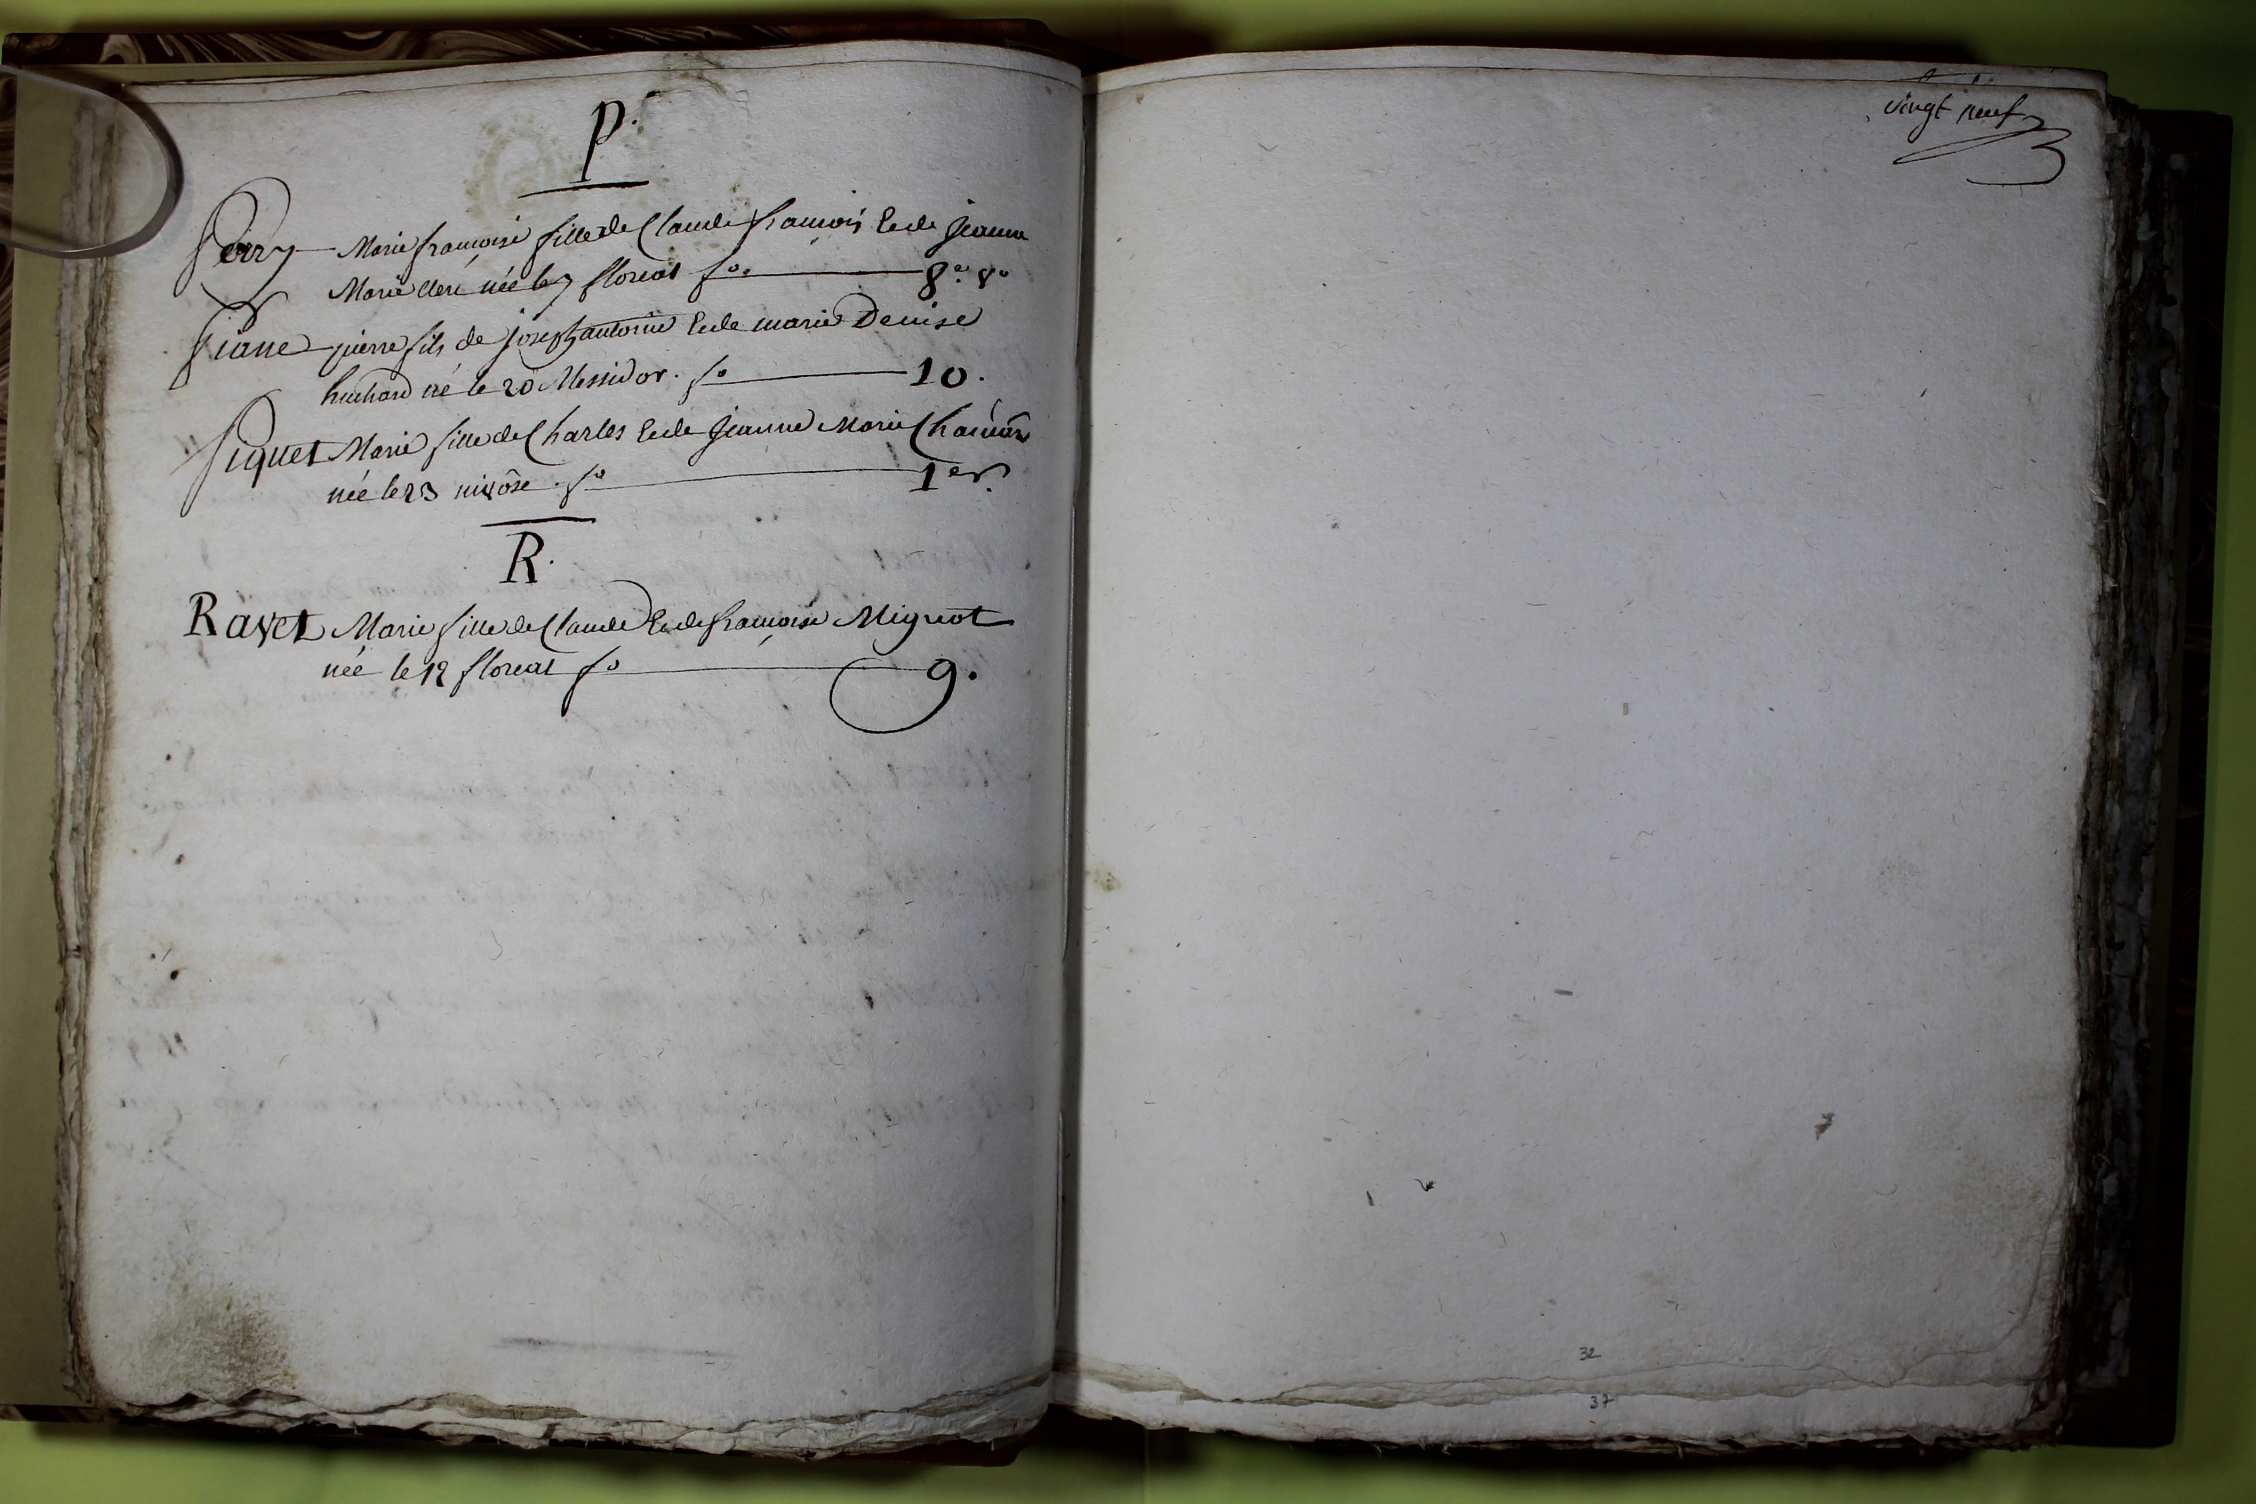 P.
Perry Marie françoise fille de Claude françois & de jeanne
Marie née le 7 floreal fo. 8.e vo
Piane pierre fils de joseph antoine & de marie Denise
huchard né le 20 Messidor. fo 10.
Piquet Marie fille de Charles & de jeanne Marie
née le 23 nivôse. fo 1er.
R.
Ravet Marie fille de Claude & de françoise Mignot
née le 12 floreal fo 9.
vingt neuf
32
37